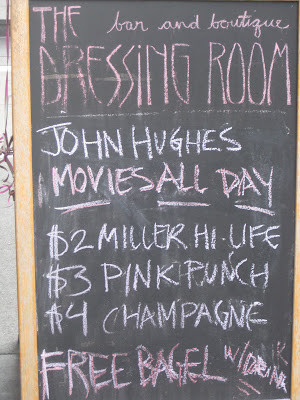 THE bar and boutique
DRESSING ROOM
JOHN HUGHES
MOVIES ALL DAY
$2 MILLER HI-LIFE
$3 PINK PUNCH
$4 CHAMPAGNE
FREE BAGEL W/DRINK